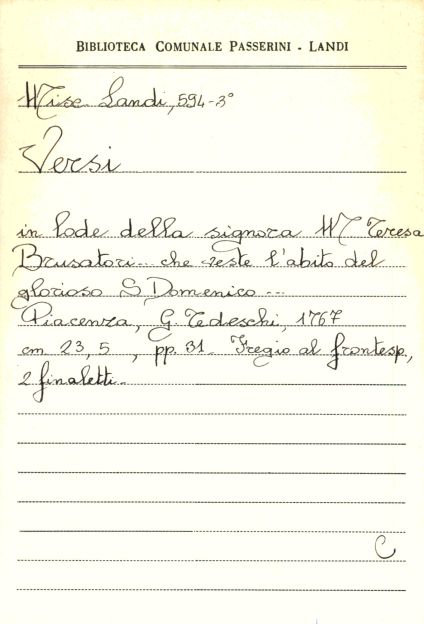 BIBLIOTECA COMUNALE PASSERINI - LANDI
Misc. Landi, 594-3°
Versi
in lode della signora M Teresa
Brusatori... che veste l'abito del
glorioso S Domenico ...
Piacenza, G. Tedeschi, 1767
cm 23,5, pp. 31. Fregio al frontesp.,
2 finaletti.
C